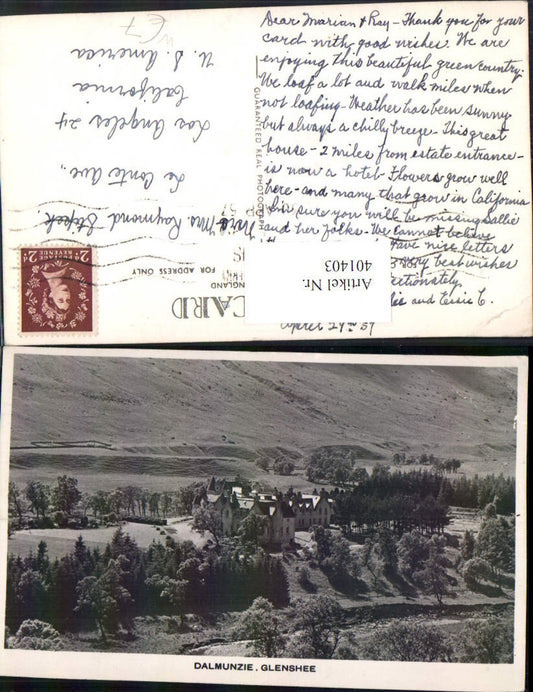 Dear Marian & Ray - Thank you for your
card with good wishes. We are
enjoying this beautiful green country.
We loaf a lot and walk miles when
not loafing - Weather has been sunny
but always a chilly breeze - This great
house - 2 miles from estate entrance -
is now a hotel - Flowers grow well
here - and many that grow in California
sure you will be missing Sallie
and her folks. We cannot believe
have nice letters
best wishes
and Essie C.
Mrs Raymond
Le Conte Ave.,
Los Angeles 24
California
U. S. America
GUARANTEED REAL PHOTOGRAPH
CARD
FOR ADDRESS ONLY
2d REVENUE 2d
Artikel Nr.
401403
DALMUNZIE, GLENSHEE